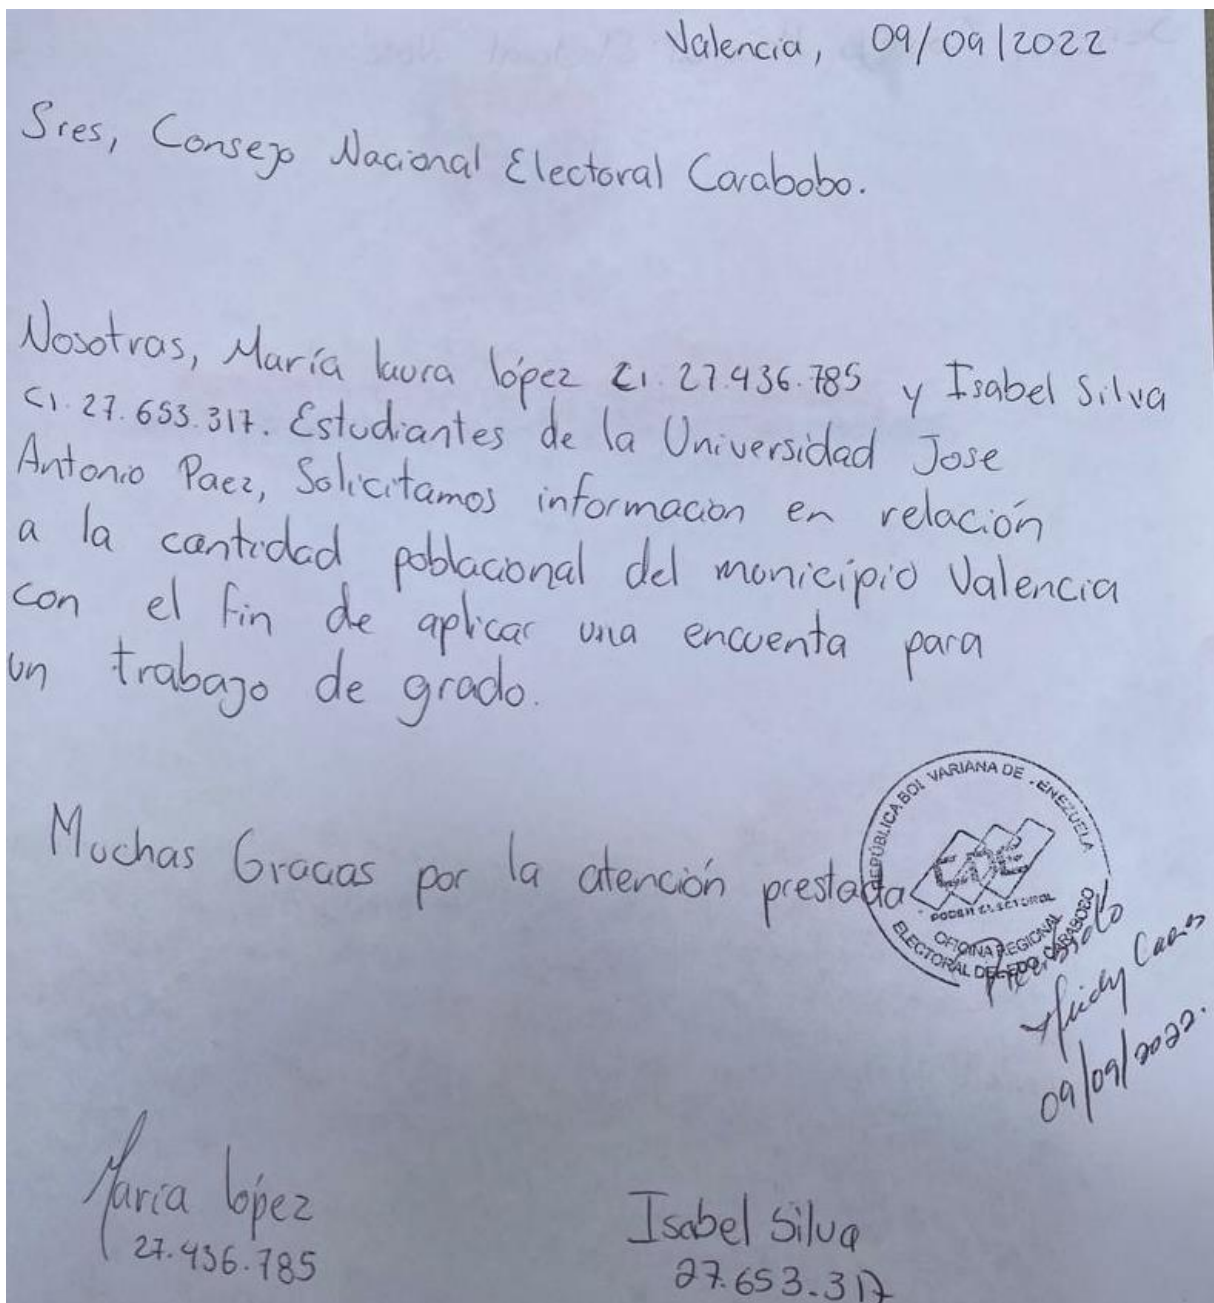 Valencia, 09/09/2022
Sres, Consejo Nacional Electoral Carabobo.
Nosotras, María laura lópez CI. 27.436.785 y Isabel Silva
CI. 27.653.317. Estudiantes de la Universidad Jose
Antonio Paez, Solicitamos informacion en relación
a la cantidad poblacional del municipio Valencia
con el fin de aplicar una encuenta para
un trabajo de grado.
Muchas Gracias por la atención prestada
REPÚBLICA BOLIVARIANA DE VENEZUELA
CNE
PODER ELECTORAL
OFICINA REGIONAL
ELECTORAL DEL EDO. CARABOBO
Recibido
09/09/2022.
María lópez
27.436.785
Isabel Silva
27.653.317